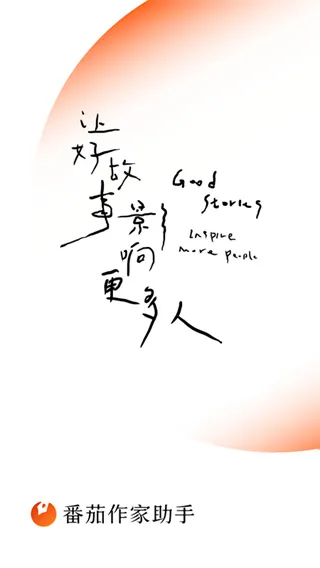 让
好故
事影
响
更多人
Good
Stories
Inspire
more people
番茄作家助手